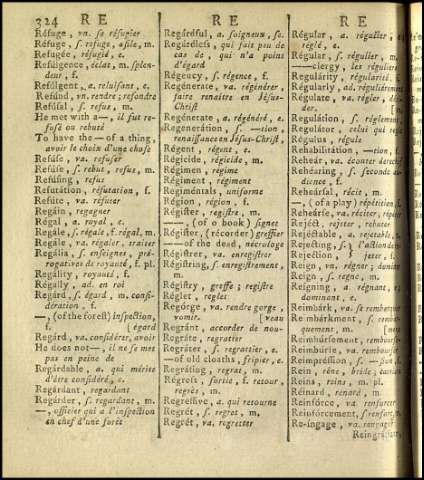 324 R E R E R E
Réfuge, vn. se réfugier
Réfuge, s. refuge, asile, m.
Refugée, réfugié, e.
Refulgence, éclat, m. splen-
deur, f.
Refúlgent, a. reluisant, e.
Refúnd, vn. rendre; refondre
Refúsal, s. refus, m.
He met with a—, il fut re-
fusé ou rebuté
To have the—of a thing,
avoir le choix d'une chose
Refúse, va. refuser
Refúse, s. rebut, refus, m.
Refúsing, refus
Refutátion, réfutation, f.
Refúte, va. réfuter
Regáin, regagner
Régal, a. royal, e.
Regále, s. régale, f. régal, m.
Regále, va. régaler, traiter
Regália, s. enseignes, pré-
rogatives de royauté, f. pl.
Regality, royauté, f.
Régally, ad. en roi
Regárd, s. égard, m. consi-
dération, f.
—, (of the forest) inspection,
f. [égard
Regárd, va. considérer, avoir
He does not—, il ne se met
pas en peine de
Regárdable, a. qui mérite
d'être considéré, e.
Regárdant, regardant
Regárder, s. regardant, m.
—, officier qui a l'inspection
en chef d'une forêt
Regárdful, a. soigneux, se.
Regárdless, qui fait peu de
cas de, qui n'a point
d'égard
Régency, s. régence, f.
Regénerate, va. régénérer,
faire renaître en Jésus-
Christ
Regénerate, a. régénéré, e.
Regeneràtion, s. —tion,
renaissance en Jésus-Christ, f.
Régent, régent, e.
Régicide, régicide, m.
Régimen, régime
Régiment, régiment
Regiméntals, uniforme
Région, région, f.
Régister, registre, m.
——, (of a book) signet
Régister, (récorder) greffier
——of the dead, nécrologe
Régistrer, va. enregistrer
Régistring, s. enregistrement,
m.
Régistry, greffe; registre
Réglet, reglet
Regórge, va. rendre gorge,
vomir. [veau
Regránt, accorder de nou-
Regráte, regratier
Regráter, s. regrattier, e.
—of old cloaths, fripier, e.
Regráting, regrat, m.
Régress, sortie, f. retour,
regrès, m.
Regressive, a. qui retourne
Regrét, s. regret, m.
Regrét, va. regretter
Régular, a. régulier, e.
réglé, e.
Régular, s. régulier, m.
—clergy, les réguliers
Regulárity, régularité, f.
Régularly, ad. régulièrement
Régulate, va. régler,
der. [m.
Regulátion, s. réglement,
Regulátor, celui qui
Régulus, régule
Rehabilitátion, —tion, f.
Rehéar, va. écouter derechef
Rehéaring, s. seconde
dience, f.
Rehéarsal, récit, m.
—, (of a play) répétition, f.
Rehéarse, va. réciter,
Rejéct, rejeter, rebuter
Rejéctable, a. rejetable,
Rejécting, s. l'action de
Rejéction, } jeter, f.
Reign, va. régner; dominer
Reign, s. regne, m.
Reigning, a. régnant, e.
dominant, e.
Reimbárk, va. se rembarquer
Reimbárkment, s. rembar-
quement, [m.
Reimbúrsement, rembourse-
Reimbúrse, va. rembourser
Reimpréssion, s. —sion, f.
Rein, rêne, bride,
Reins, reins, m. pl.
Reínard, renard, m.
Reinfórce, va. renforcer
Reinfórcement, s. renfort, m.
Re-ingáge, va. rengager
Reingráter,